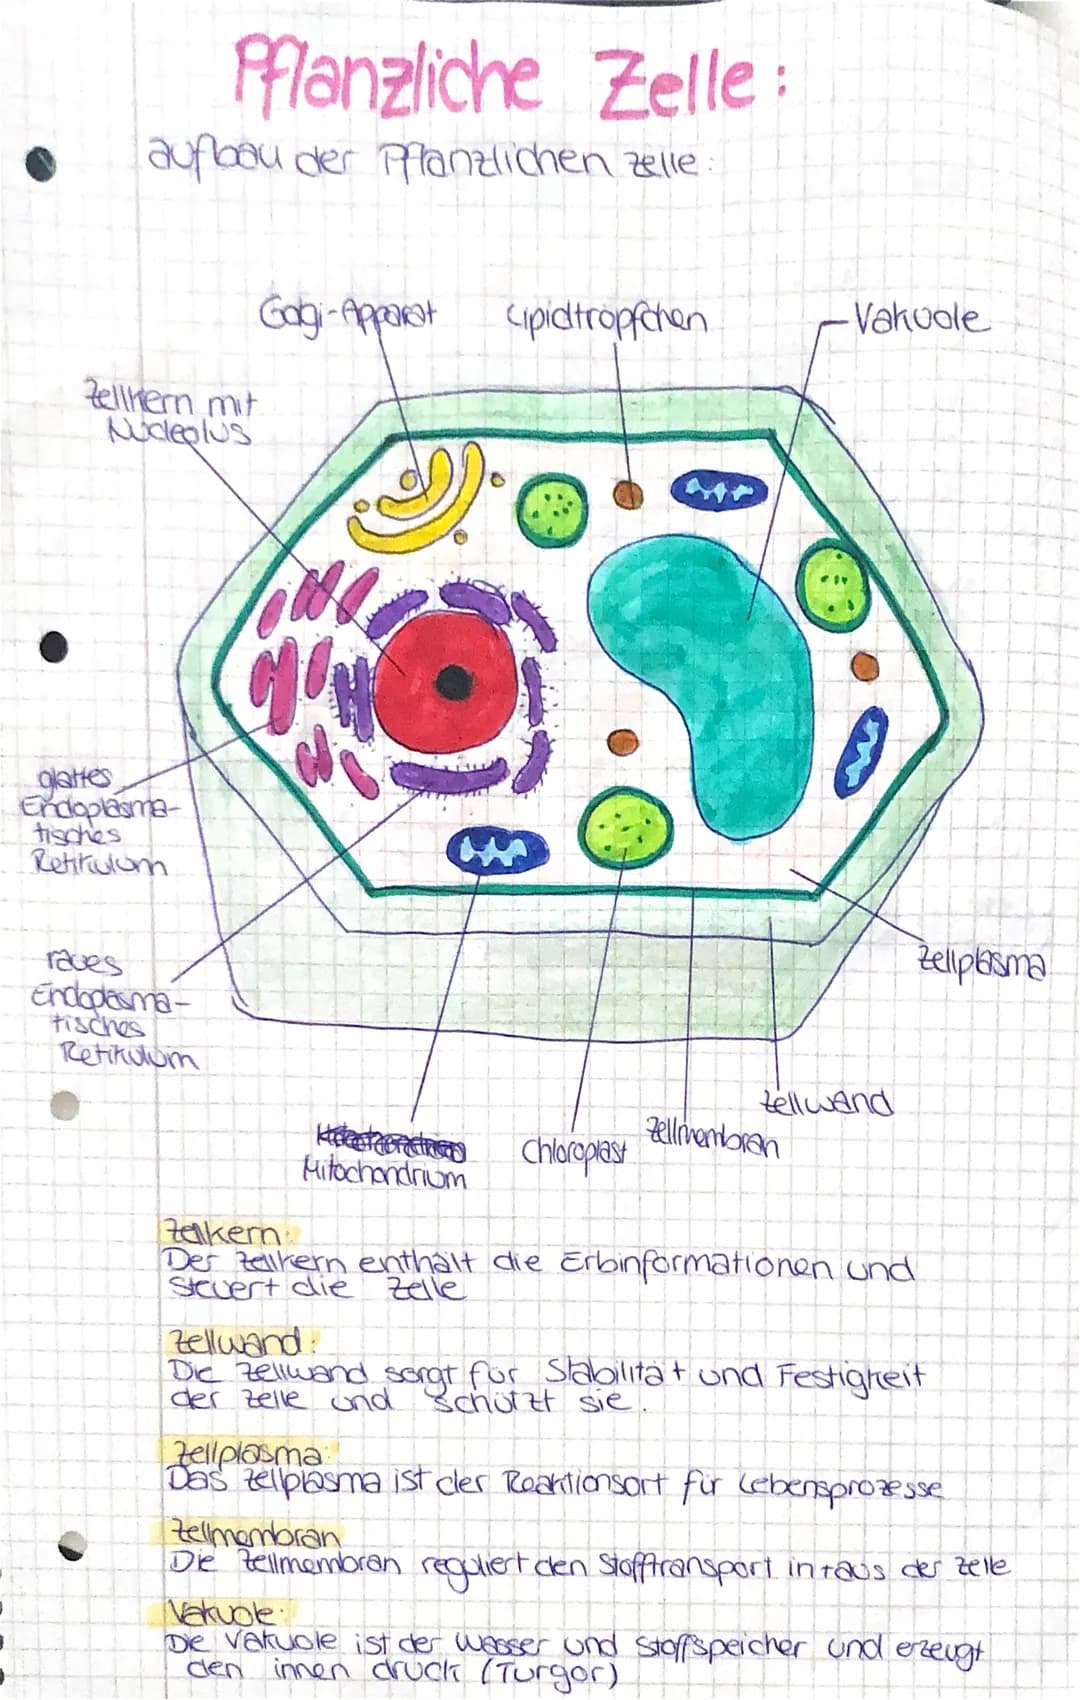 Pflanzliche Zelle:
aufbau der Pflanzlichen Zelle:
Gogi-Apparat
Lipidtröpfchen
Vakuole
Zellkern mit
Nucleolus
glattes
Endoplasma-
tisches
Retikulum
raues
Endoplasma-
tisches
Retikulum
Zellplasma
Zellwand
Zellmembran
Chloroplast
Mitochondrium
Zellkern:
Der Zellkern enthält die Erbinformationen und
steuert die Zelle
Zellwand:
Die Zellwand sorgt für Stabilität und Festigkeit
der Zelle und schützt sie.
Zellplasma:
Das Zellplasma ist der Reaktionsort für Lebensprozesse
Zellmembran
Die Zellmembran reguliert den Stofftransport in+aus der Zelle
Vakuole:
Die Vakuole ist der Wasser und Stoffspeicher und erzeugt
den innen druck (Turgor)